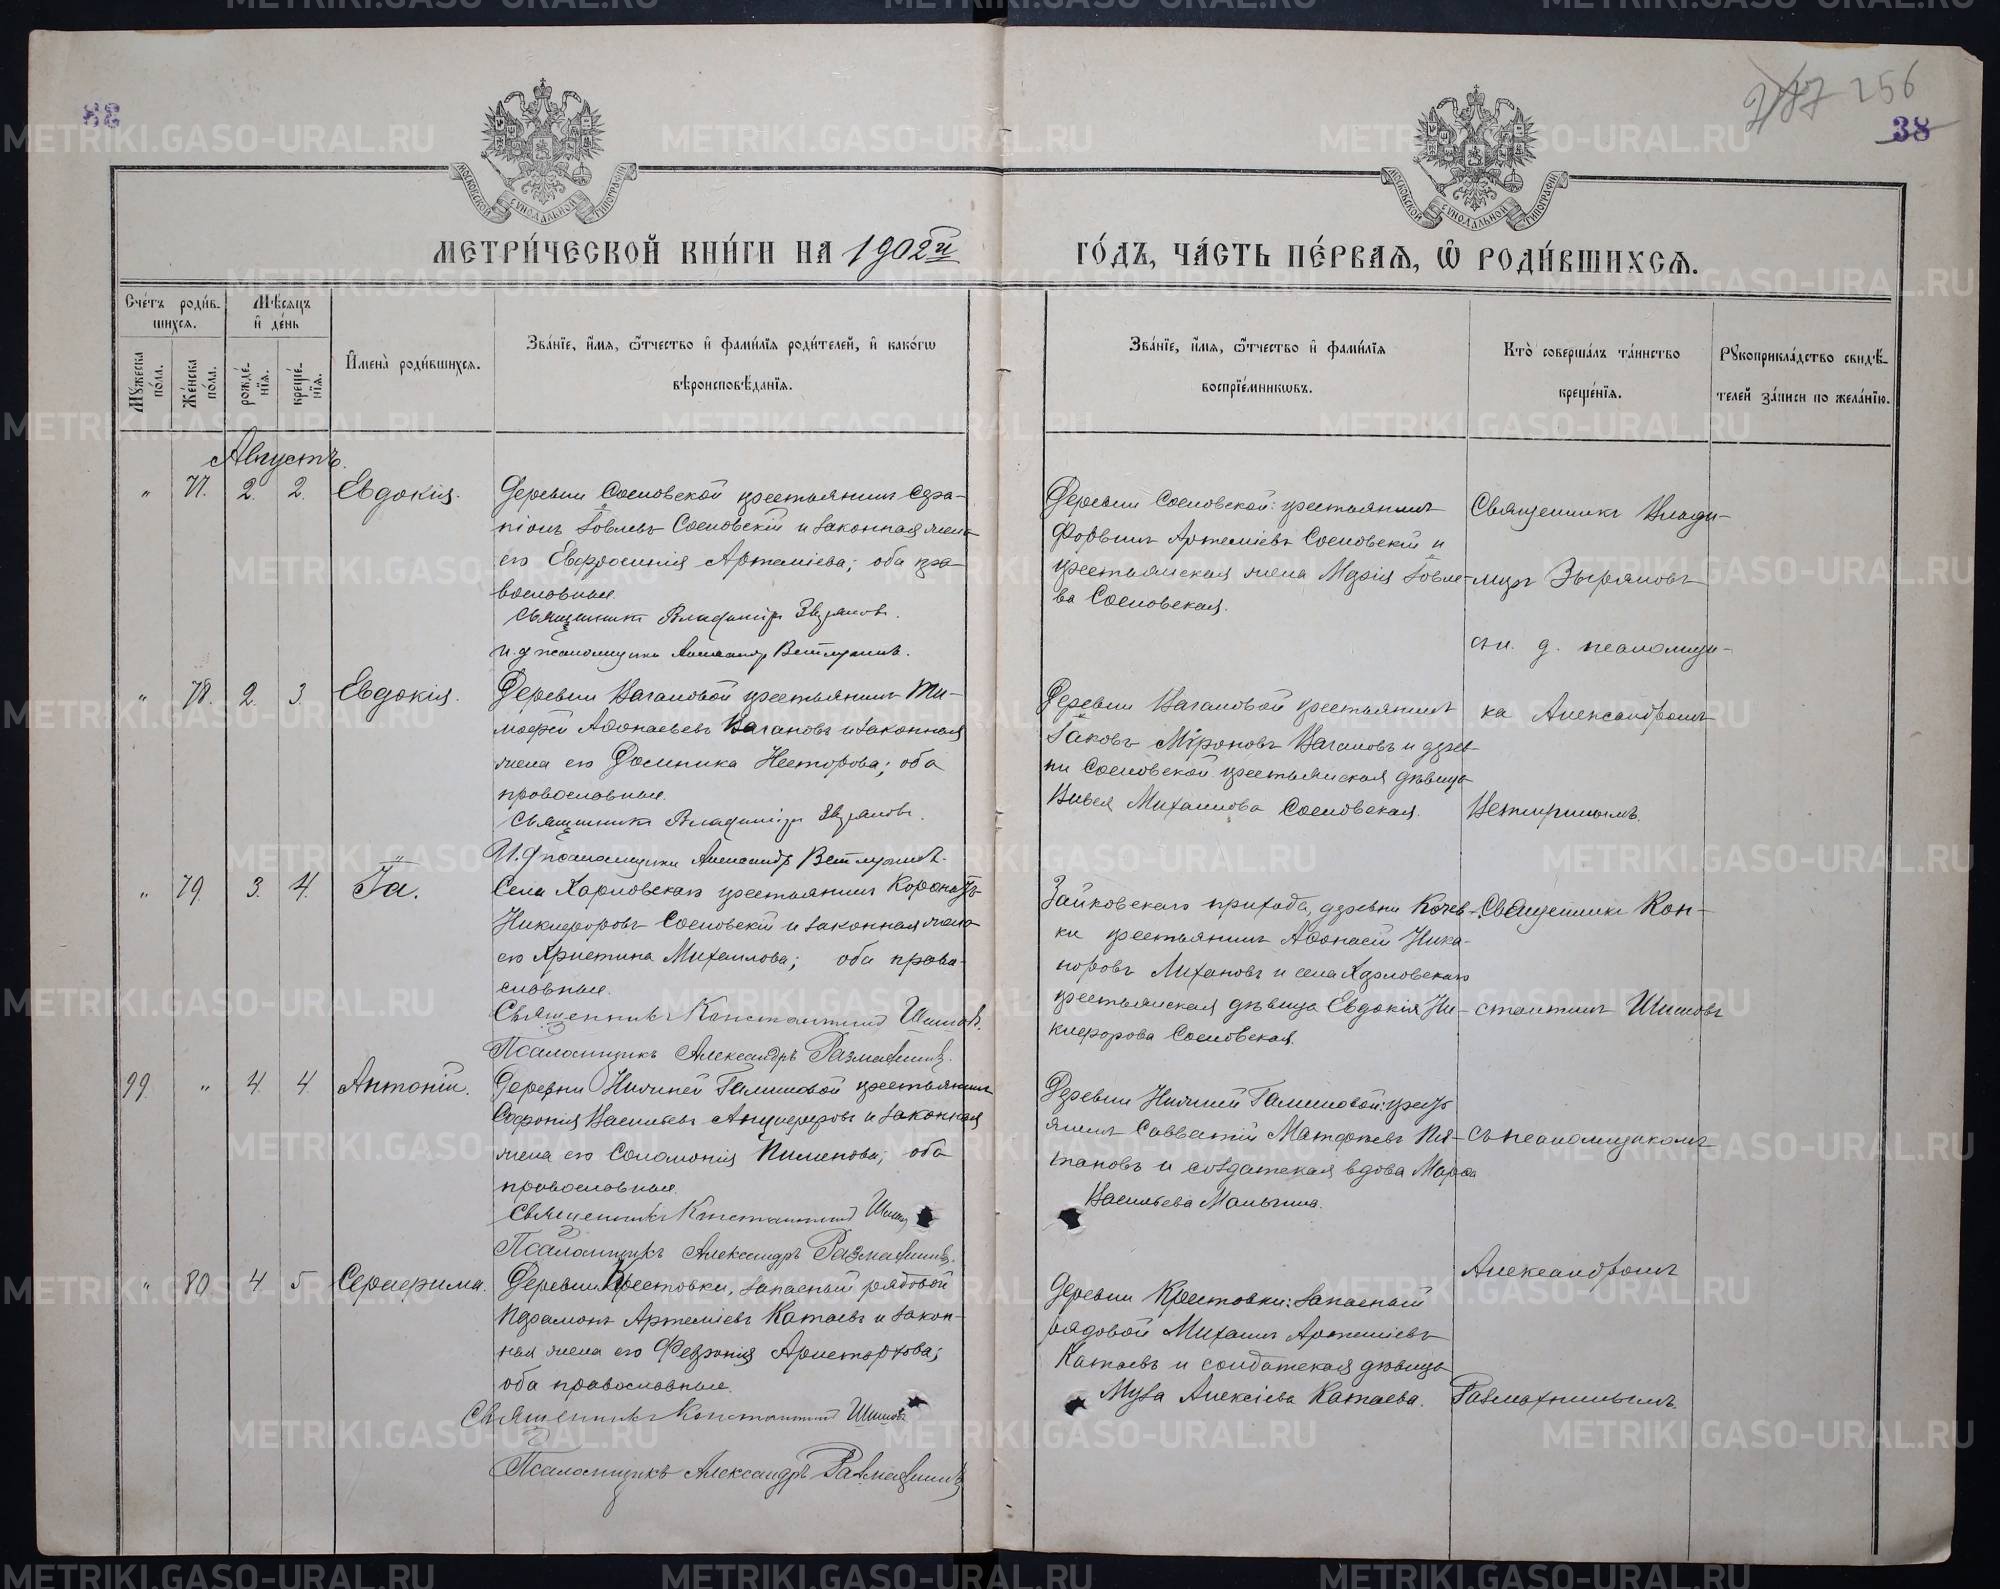 38
277 256
38
МОСКОВСКОЙ СУНОДАЛЬНОЙ ТИПОГРАФИИ
МОСКОВСКОЙ СУНОДАЛЬНОЙ ТИПОГРАФИИ
МЕТРИ́ЧЕСКОЙ КНИ́ГИ НА 1902й
ГО́ДЪ, ЧА́СТЬ ПЕ́РВАѦ, Ѽ РОДИ́ВШИХСѦ.
Сче́тъ роди́в-
шихсѧ.
Мѣ́сѧцъ
и҆ де́нь
Мꙋ́жеска по́ла.
Же́нска по́ла.
рожде́-
нїѧ.
креще́-
нїѧ.
И҆мена̀ роди́вшихсѧ.
Зва́нїе, и҆́мѧ, ѻ҆́тчество и҆ фами́лїѧ роди́телей, и҆ како́гѡ
вѣроисповѣ́данїѧ.
Зва́нїе, и҆́мѧ, ѻ҆́тчество и҆ фами́лїѧ
воспрїе́мникѡвъ.
Кто̀ соверша́лъ та́инство
креще́нїѧ.
Рꙋкоприкла́дство свидѣ́-
телей за́писи по жела́нїю.
Августъ.
" 77. 2. 2. Евдокія.
Деревни Сосновской крестьянинъ Сера-
піонъ Іовлевъ Сосновскій и законная жена
его Евфросинія Артеміева; оба пра-
вославные.
Священникъ Владиміръ Зыряновъ.
И. д. псаломщика Александр
Деревни Сосновской: крестьянинъ
Артеміевъ Сосновскій и
крестьянская жена Марія Іовле-
ва Сосновская.
Священникъ Влади-
міръ Зыряновъ
съ и. д. псаломщи-
" 78. 2. 3. Евдокія.
Деревни Вагановой крестьянинъ Ти-
мофей Афонасьевъ Вагановъ и законная
жена его Домника Несторова; оба
православные.
Священникъ Владиміръ Зыряновъ.
И. д. псаломщика Александръ
Деревни Вагановой крестьянинъ
Іаковъ Мѵроновъ Вагановъ и дерев-
ни Сосновской крестьянская дѣвица
Михаилова Сосновская.
ка Александромъ
" 79. 3. 4. Іа.
Села Харловскаго крестьянинъ Коронатъ
Никифоровъ Сосновскій и законная жена
его Христина Михаилова; оба право-
славные.
Священникъ Константинъ Шишовъ.
Псаломщикъ Александръ Размахнинъ.
Зайковскаго прихода, деревни Кочев-
ки крестьянинъ Афонасій Ника-
норовъ Лихановъ и села Харловскаго
крестьянская дѣвица Евдокія Ни-
кифорова Сосновская.
Священникъ Кон-
стантинъ Шишовъ
99 " 4. 4. Антоній.
Деревни Нижней Галишовой крестьянинъ
Софонія Васильевъ Анциферовъ и законная
жена его Соломонія Пименова; оба
православные.
Священникъ Константинъ
Псаломщикъ Александръ Размахнинъ.
Деревни Нижней Галишовой: кресть-
янинъ Савватій Матфіевъ Пя-
тановъ и солдатская вдова Марфа
Васильева Манькина.
съ псаломщикомъ
" 80. 4 5 Серафима.
Деревни Крестовки, запасный рядовой
Парамонъ Артеміевъ Катаевъ и закон-
ная жена его Февронія Аристархова;
оба православные.
Священникъ Константинъ Шишовъ
Псаломщикъ Александръ Размахнинъ
Деревни Крестовки: запасный
рядовой Михаилъ Артеміевъ
Катаевъ и солдатская дѣвица
Муза Алексіева Катаева.
Александромъ
Размахнинымъ.
METRIKI.GASO-URAL.RU